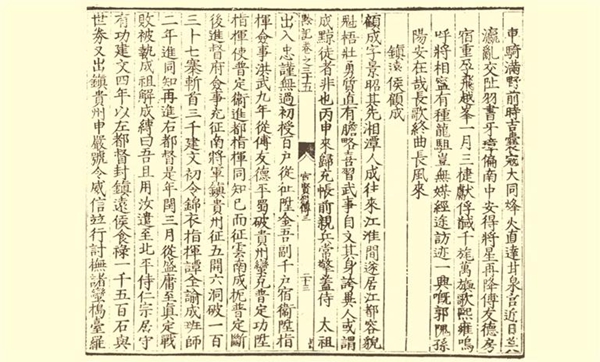 車騎滿野前時吉囊寇大同烽火直達甘泉宮近日莫
瀛亂交阯羽書牙璋徧南中安得將星再降傅友德房
宿重孕飛越峯一月三捷獻俘馘千旄萬旟歌熙雍嗚
呼將相寧有種龍駔豈無媒經途訪迹一興慨郭隗孫
陽安在哉長歌終曲長風來
鎮遠侯顧成
顧成字景昭其先湘潭人成往來江淮間遂居江都容貌
魁梧壯勇質直有膽略善習武事自文其身誇異人或謂
成黥徒者非也丙申來歸充帳前親兵常擎蓋侍 太祖
黔記卷之三十五 宦賢列傳二 二十三
出入忠謹無過初授百戶從征陞金吾副千戶宿衞陞指
揮僉事洪武九年從傅友德平蜀破貴州蠻充普定功陞
指揮使普定衞進都指揮同知已而征雲南成扼普定斷
後進督府僉事充征南將軍鎮貴州征五開六洞破一百
三十七寨斬首三千建文初令錦衣指揮譚全諭成班師
二年進同知再進右都督是年閏三月從盛庸至真定戰
敗被執成祖解成縛曰吾且用汝遣至北平侍仁宗居守
有功建文四年以左都督封鎮遠侯食祿一千五百石與
世券又出鎮貴州申嚴號令威信竝行討撫諸蠻楊臺羅